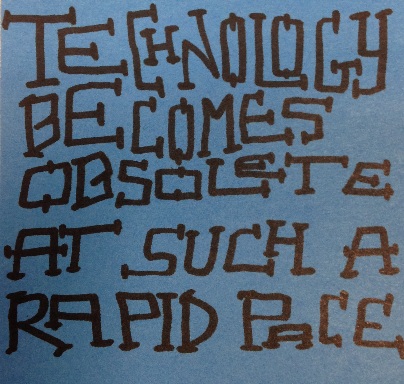 TECHNOLOGY
BECOMES
OBSOLETE
AT SUCH A
RAPID PACE